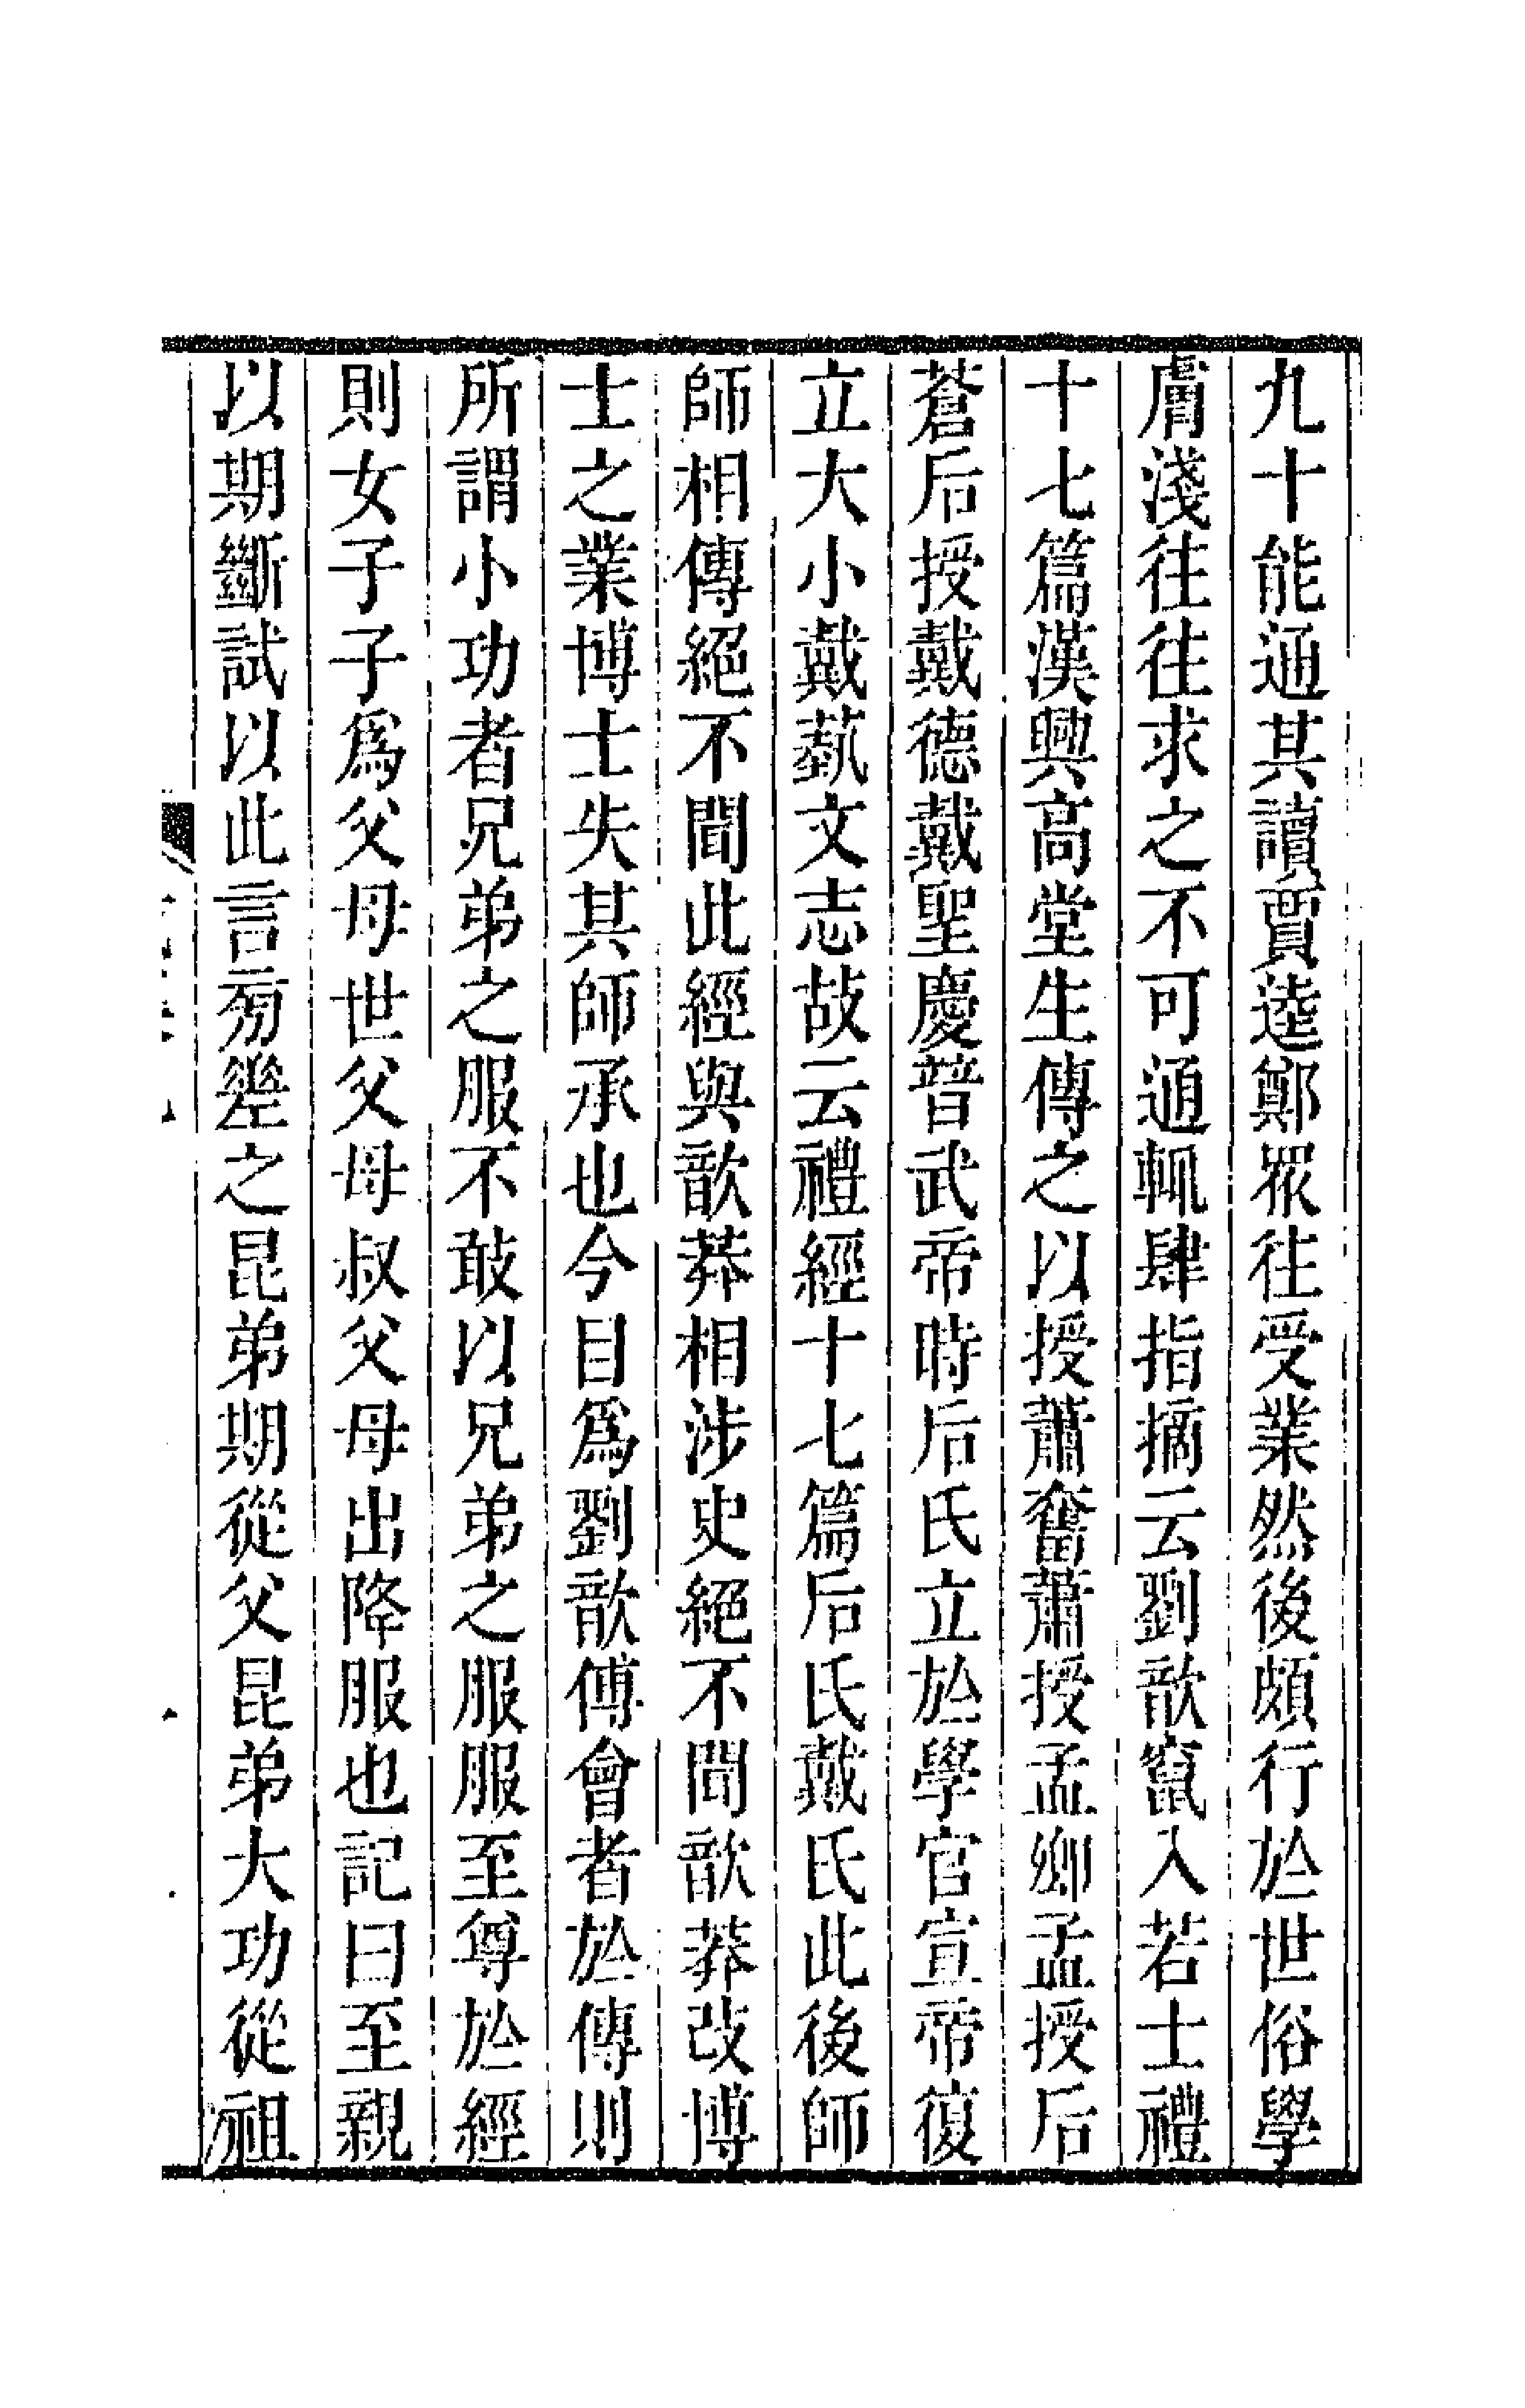 九十能通其讀賈逵鄭眾往受業然後頗行於世俗學
膚淺往往求之不可通輒肆指摘云劉歆竄入若士禮
十七篇漢興高堂生傳之以授蕭奮蕭授孟卿孟授后
蒼后授戴德戴聖慶普武帝時后氏立於學官宣帝復
立大小戴蓺文志故云禮經十七篇后氏戴氏此後師
師相傳絕不聞此經與歆莽相涉史絕不聞歆莽改博
士之業博士失其師承也今目爲劉歆傅會者於傳則
所謂小功者兄弟之服不敢以兄弟之服服至尊於經
則女子子爲父母世父母叔父母出降服也記曰至親
以期斷試以此言旁差之昆弟期從父昆弟大功從祖